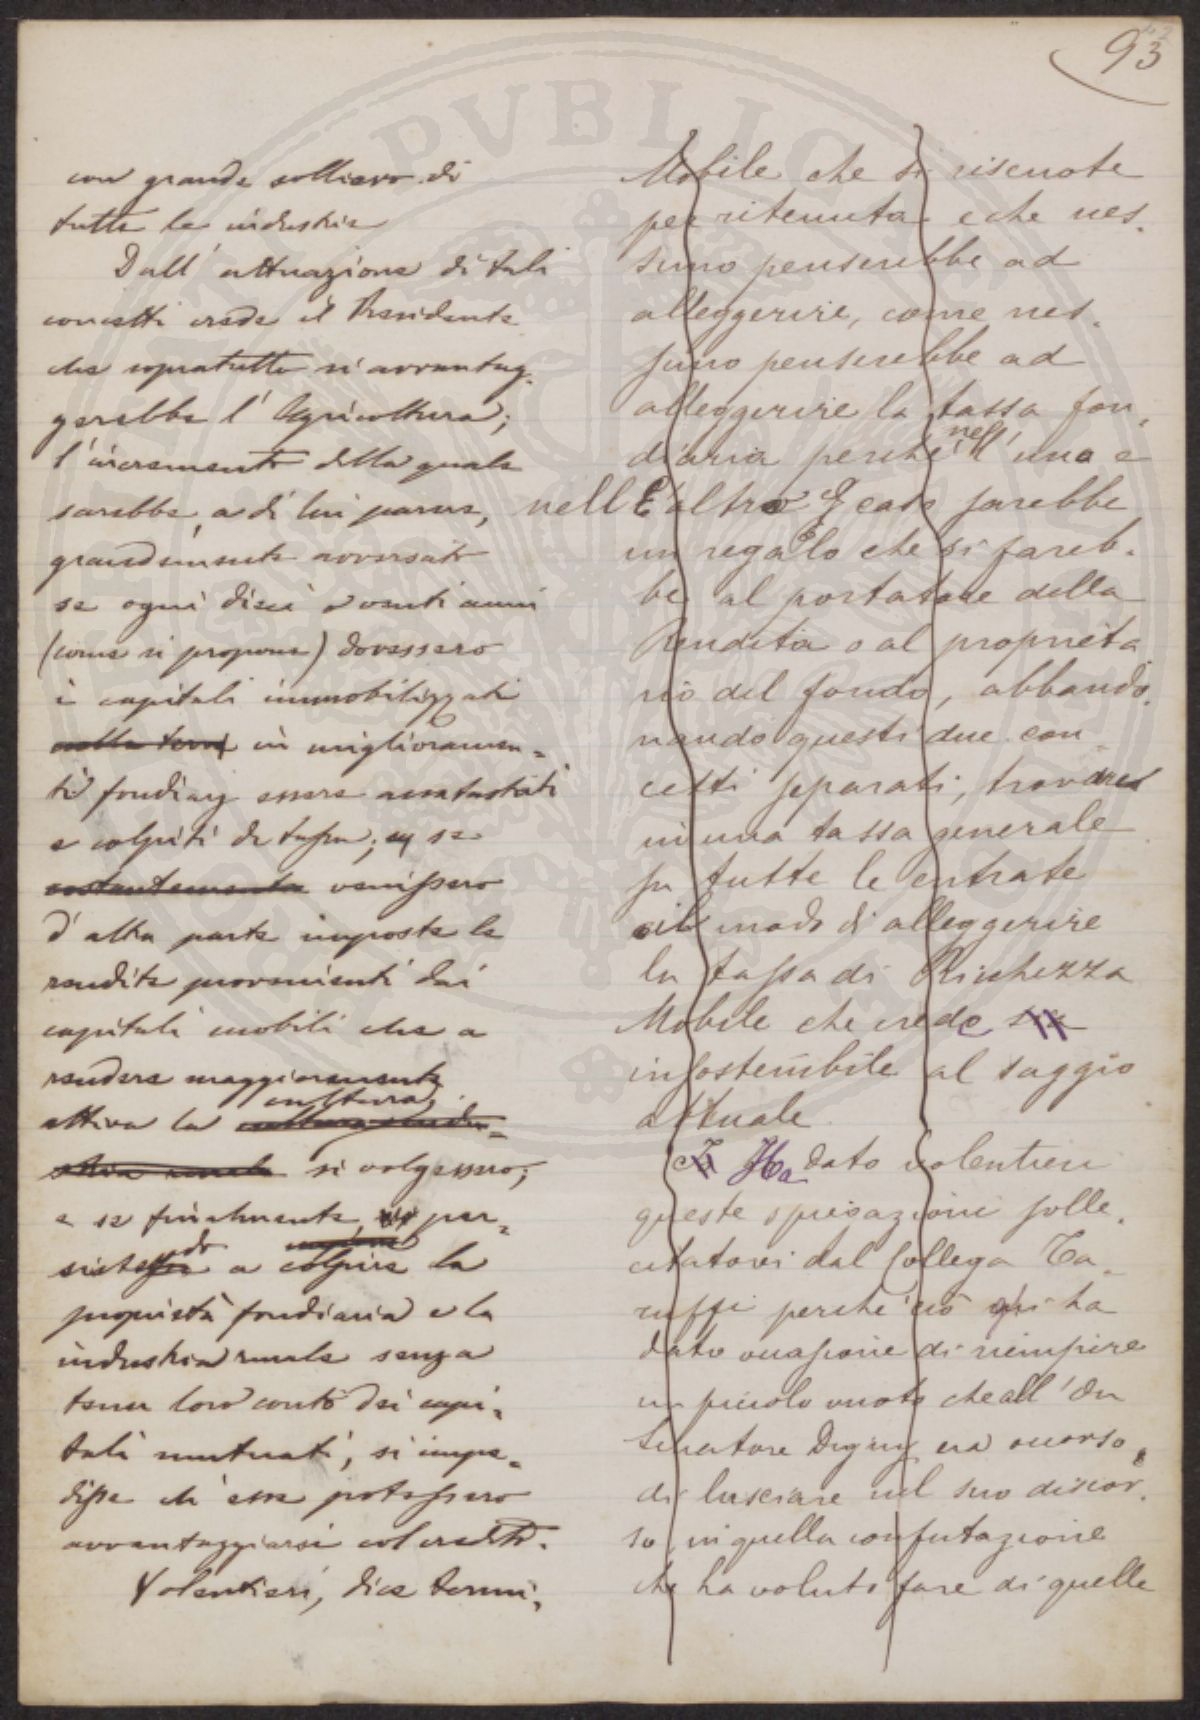 93
con grande sollievo di
tutte le industrie
Dall'attuazione di tali
concetti crede il Presidente
che sopratutto si avvantag-
gerebbe l'Agricoltura;
l'incremento della quale
sarebbe, a di lui parere,
grandemente avversato
se ogni dieci o venti anni
(come si propone) dovessero
i capitali immobilizzati
nella terra in miglioramen-
ti fondiarj essere accatastati
e colpiti da tassa; se
costantemente venissero
d'altra parte imposte le
rendite provenienti dai
capitali mobili che a
rendere maggiormente
attiva la cultura
si volgessero;
e se finalmente per-
sistendo a colpire la
proprietà fondiaria e la
industria rurale senza
tener loro conto dei capi-
tali mutuati, si impe-
disse ch'esse potessero
avvantaggiarsi col credito.
Volentieri, dice termi-
Mobile che si riscuote
per ritenuta e che nes-
suno penserebbe ad
alleggerire, come nes-
suno penserebbe ad
alleggerire la tassa fon-
diaria perché nell'una e
nell'altro caso sarebbe
un regalo che si fareb-
be al portatore della
Rendita o al proprieta
rio del fondo, abbando-
nando questi due con-
cetti separati,
in una tassa generale
su tutte le entrate
il modo di alleggerire
la tassa di Ricchezza
Mobile che crede
insostenibile al saggio
attuale.
Ha dato volentieri
queste spiegazioni solle-
citatovi dal Collega Ca-
ruffi perché ciò gli ha
dato occasione di riempire
un piccolo vuoto che all'On
Senatore Digny era occorso
di lasciare nel suo discor-
so, in quella confutazione
che ha voluto fare di quelle